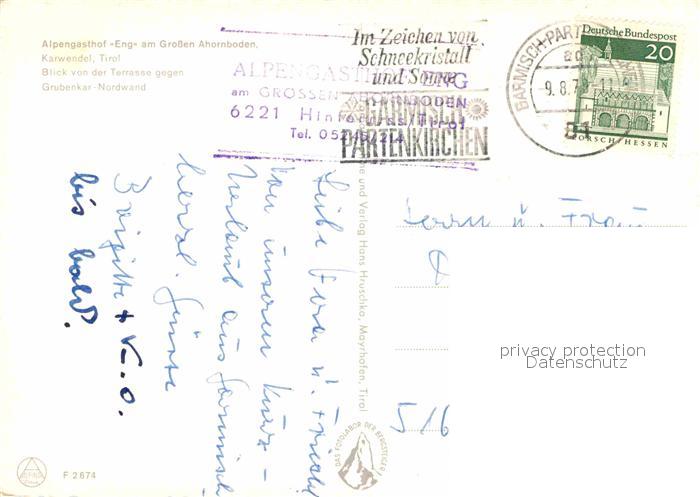 Alpengasthof »Eng« am Großen Ahornboden,
Karwendel, Tirol
Blick von der Terrasse gegen
Grubenkar-Nordwand
Im Zeichen von
Schneekristall
und Sonne
GARMISCH
PARTENKIRCHEN
ALPENGASTHOF ENG
am GROSSEN AHORNBODEN
6221 Hinterriss/Tirol
Tel. 05245/214
GARMISCH-PARTENKIRCHEN
9.8.7
81
Deutsche Bundespost
20
LORSCH/HESSEN
und Verlag Hans Hruschka, Mayrhofen, Tirol
Herrn u. Frau
privacy protection
Datenschutz
516
Liebe u.
Von unserem Kurz-
Urlaub aus Garmisch
herzl. Grüsse
Brigitte +
bis bald.
DAS FOTOLABOR DER BERGSTEIGER
F 2674